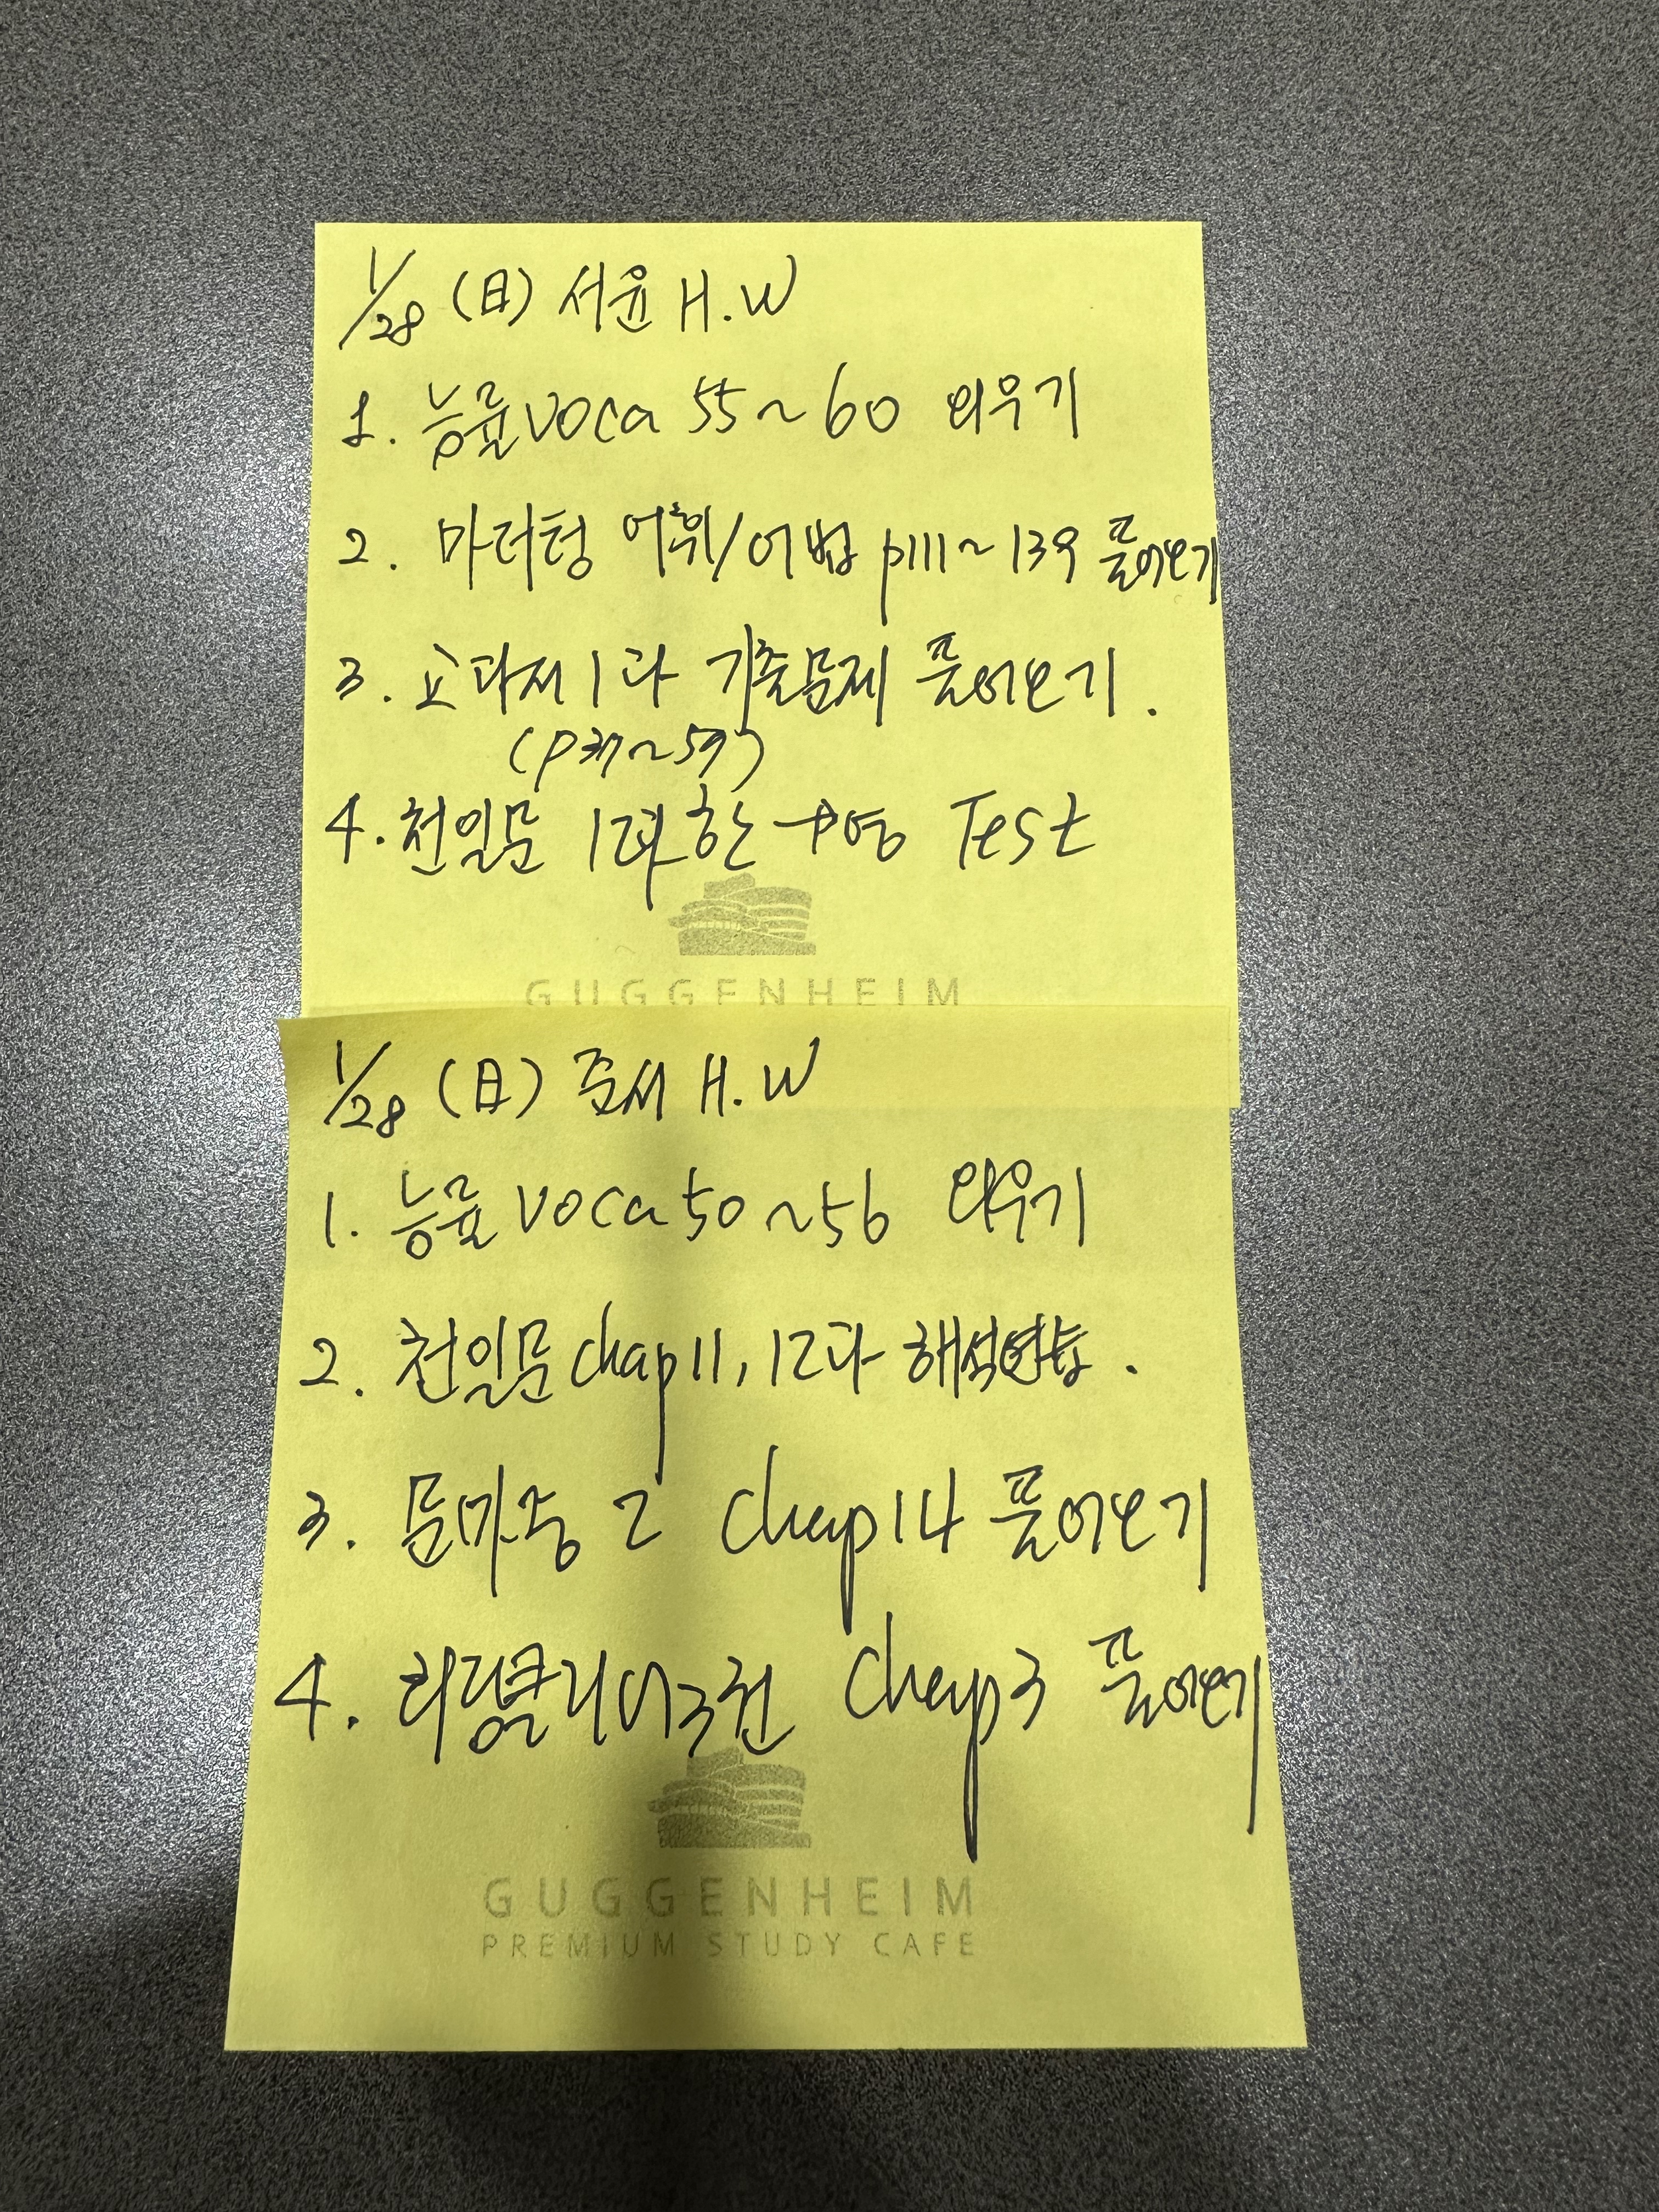 1/28 (日) 서윤 H.W
1. 능률 voca 55~60 외우기
2. 마더텅 어휘/어법 p111~139 풀어오기
3. 교과서 1과 기출문제 풀어오기.
(p37~59)
4. 천일문 12과 한→영 Test
GUGGENHEIM
1/28 (日) 준서 H.W
1. 능률 voca 50~56 외우기
2. 천일문 chap 11, 12과 해석연습.
3. 문마중 2 chap 14 풀어오기
4. 3권 chap 3 풀어오기
GUGGENHEIM
PREMIUM STUDY CAFE